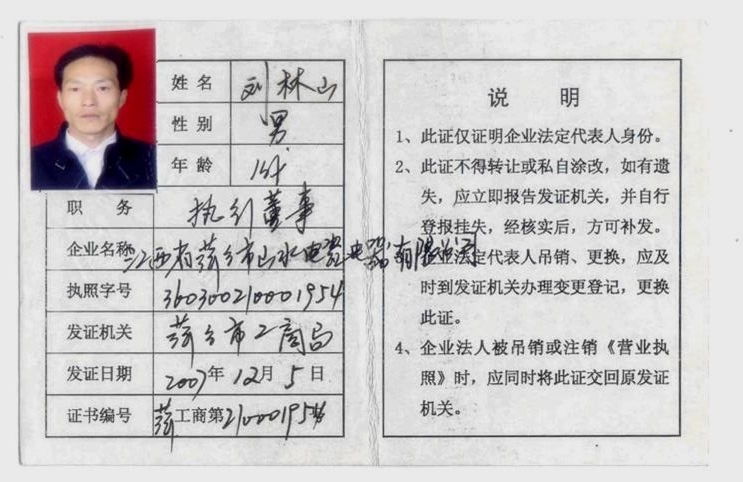 姓名 刘林山
性别 男
年龄
职务 执行董事
企业名称 江西省萍乡市山水电瓷电器有限公司
执照字号 360300210001954
发证机关 萍乡市工商局
发证日期 2007年12月5日
证书编号 萍工商第210001954
说明
1、此证仅证明企业法定代表人身份。
2、此证不得转让或私自涂改，如有遗
失，应立即报告发证机关，并自行
登报挂失，经核实后，方可补发。
法定代表人吊销、更换，应及
时到发证机关办理变更登记，更换
此证。
4、企业法人被吊销或注销《营业执
照》时，应同时将此证交回原发证
机关。